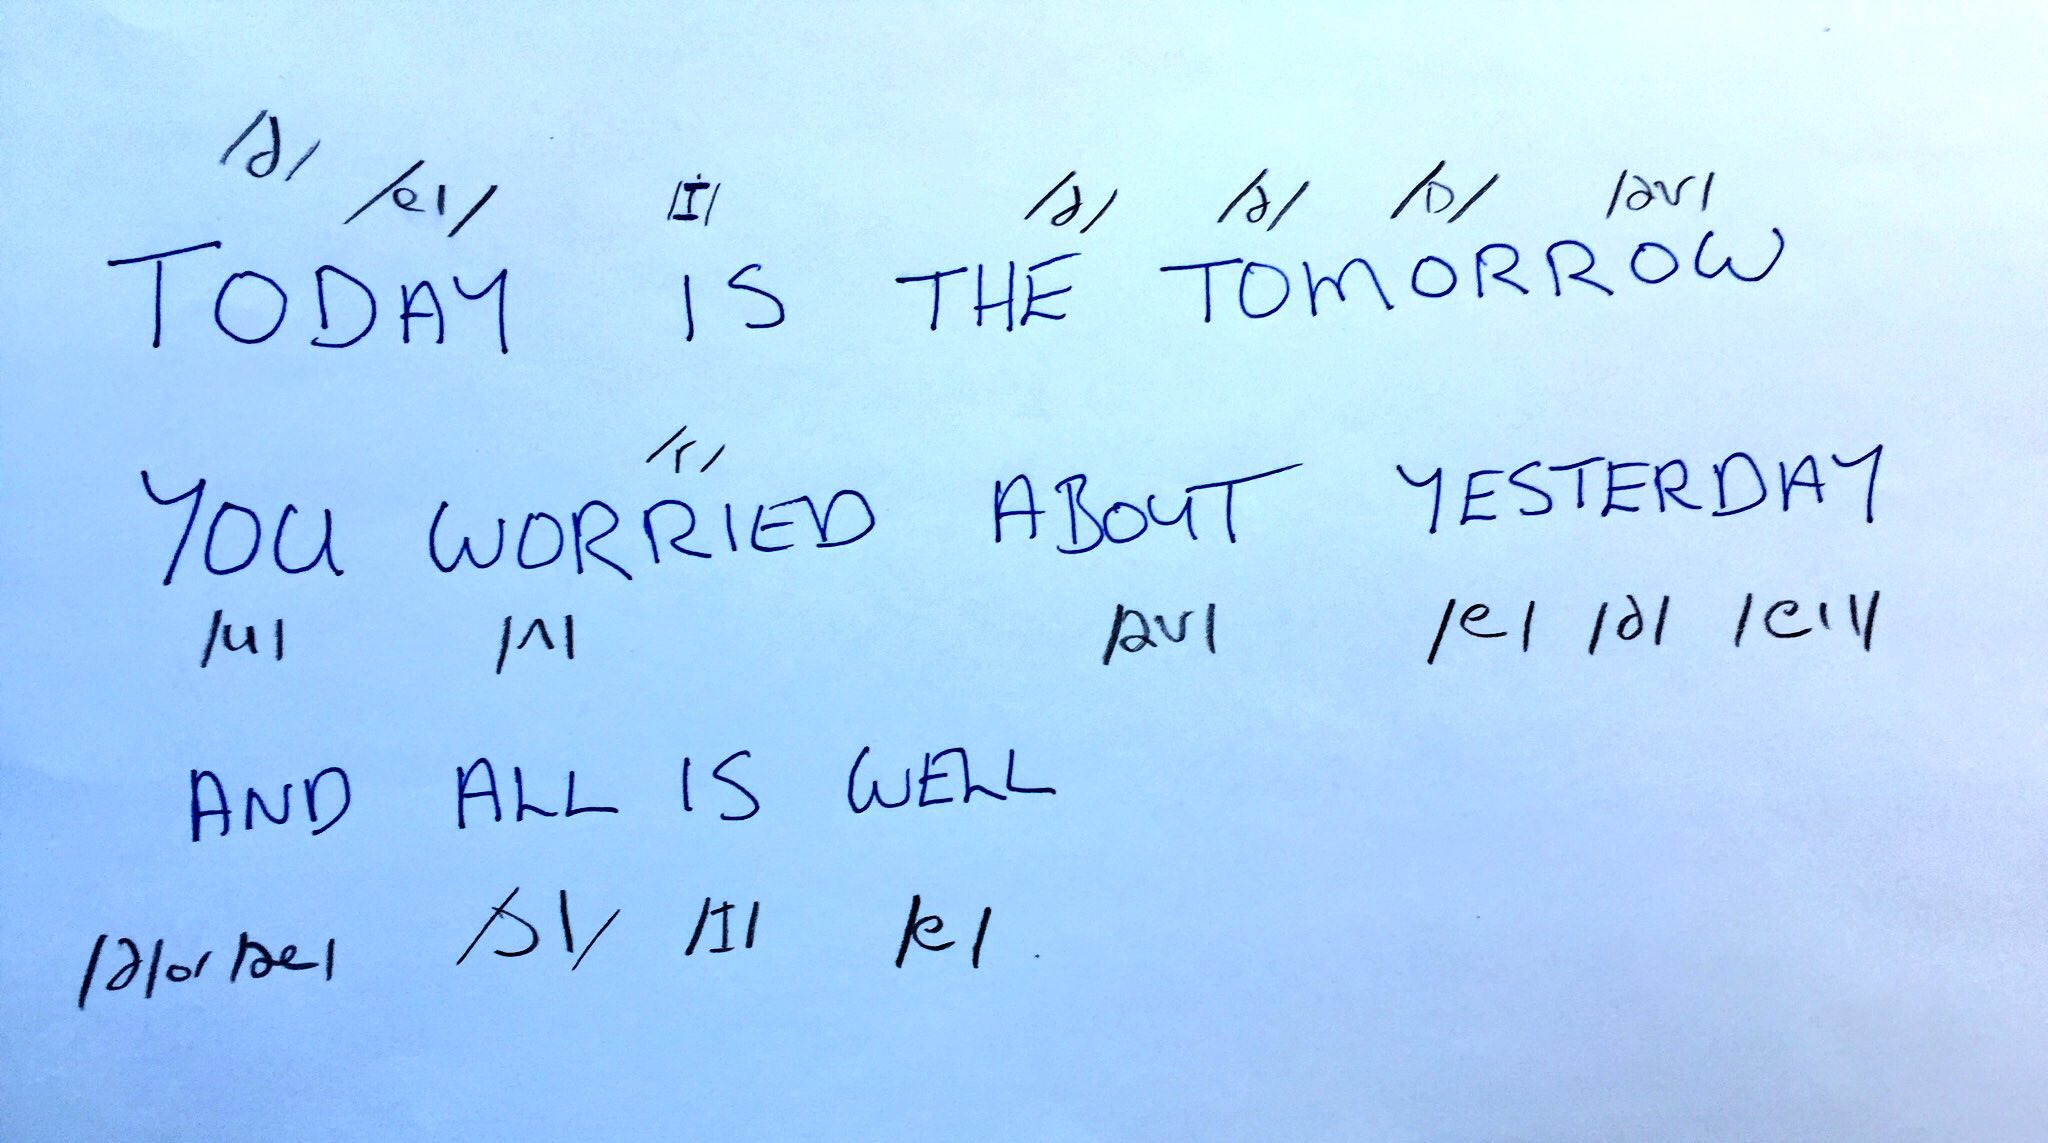 /ə/ /eɪ/ /ɪ/ /ə/ /ə/ /ɒ/ /əʊ/
TODAY IS THE TOMORROW
/r/
YOU WORRIED ABOUT YESTERDAY
/u/ /ʌ/ /aʊ/ /e/ /ə/ /eɪ/
AND ALL IS WELL
/ə/ or /æ/ /ɔl/ /ɪ/ /e/